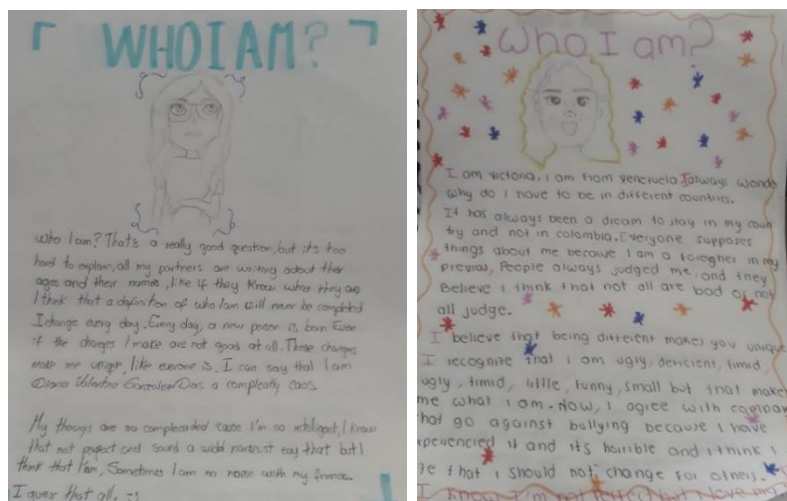 WHO I AM?
Who I am? That's a really good question, but it's too
hard to explain, all my partners are writing about their
ages and their names, like if they know what they are
I think that a definition of who I am will never be completed
I change every day. Every day, a new person is born Even
if the changes I make are not good at all. These changes
make me unique, like everone is. I can say that I am
Diana Valentina Gonzalez a compleatly caos.
My thougs are so complecaded cause I'm so intelligent, I know
that not perfect and sound a narsist say that but I
think that I am, Sometimes I am so with my friends.
I guess that all. :-)
Who I am?
I am victoria, i am from venezuela I always wonde
why do I have to be in different countries.
It has always been a dream to stay in my coun
try and not in colombia. Everyone supposes
things about me because I am a foregher in my
previus, People always judged me, and they
Believe I think that not all are bad or not
all judge.
I believe that being different makes you unique
I recognize that I am ugly, deficient, timid,
ugly, timid, little, funny, small but that make
me what I am. Now, I agree with campai
hat go against bullying because I have
xperiencied it and its horrible and I think I
ze that I should not change for others.
I know I'm not